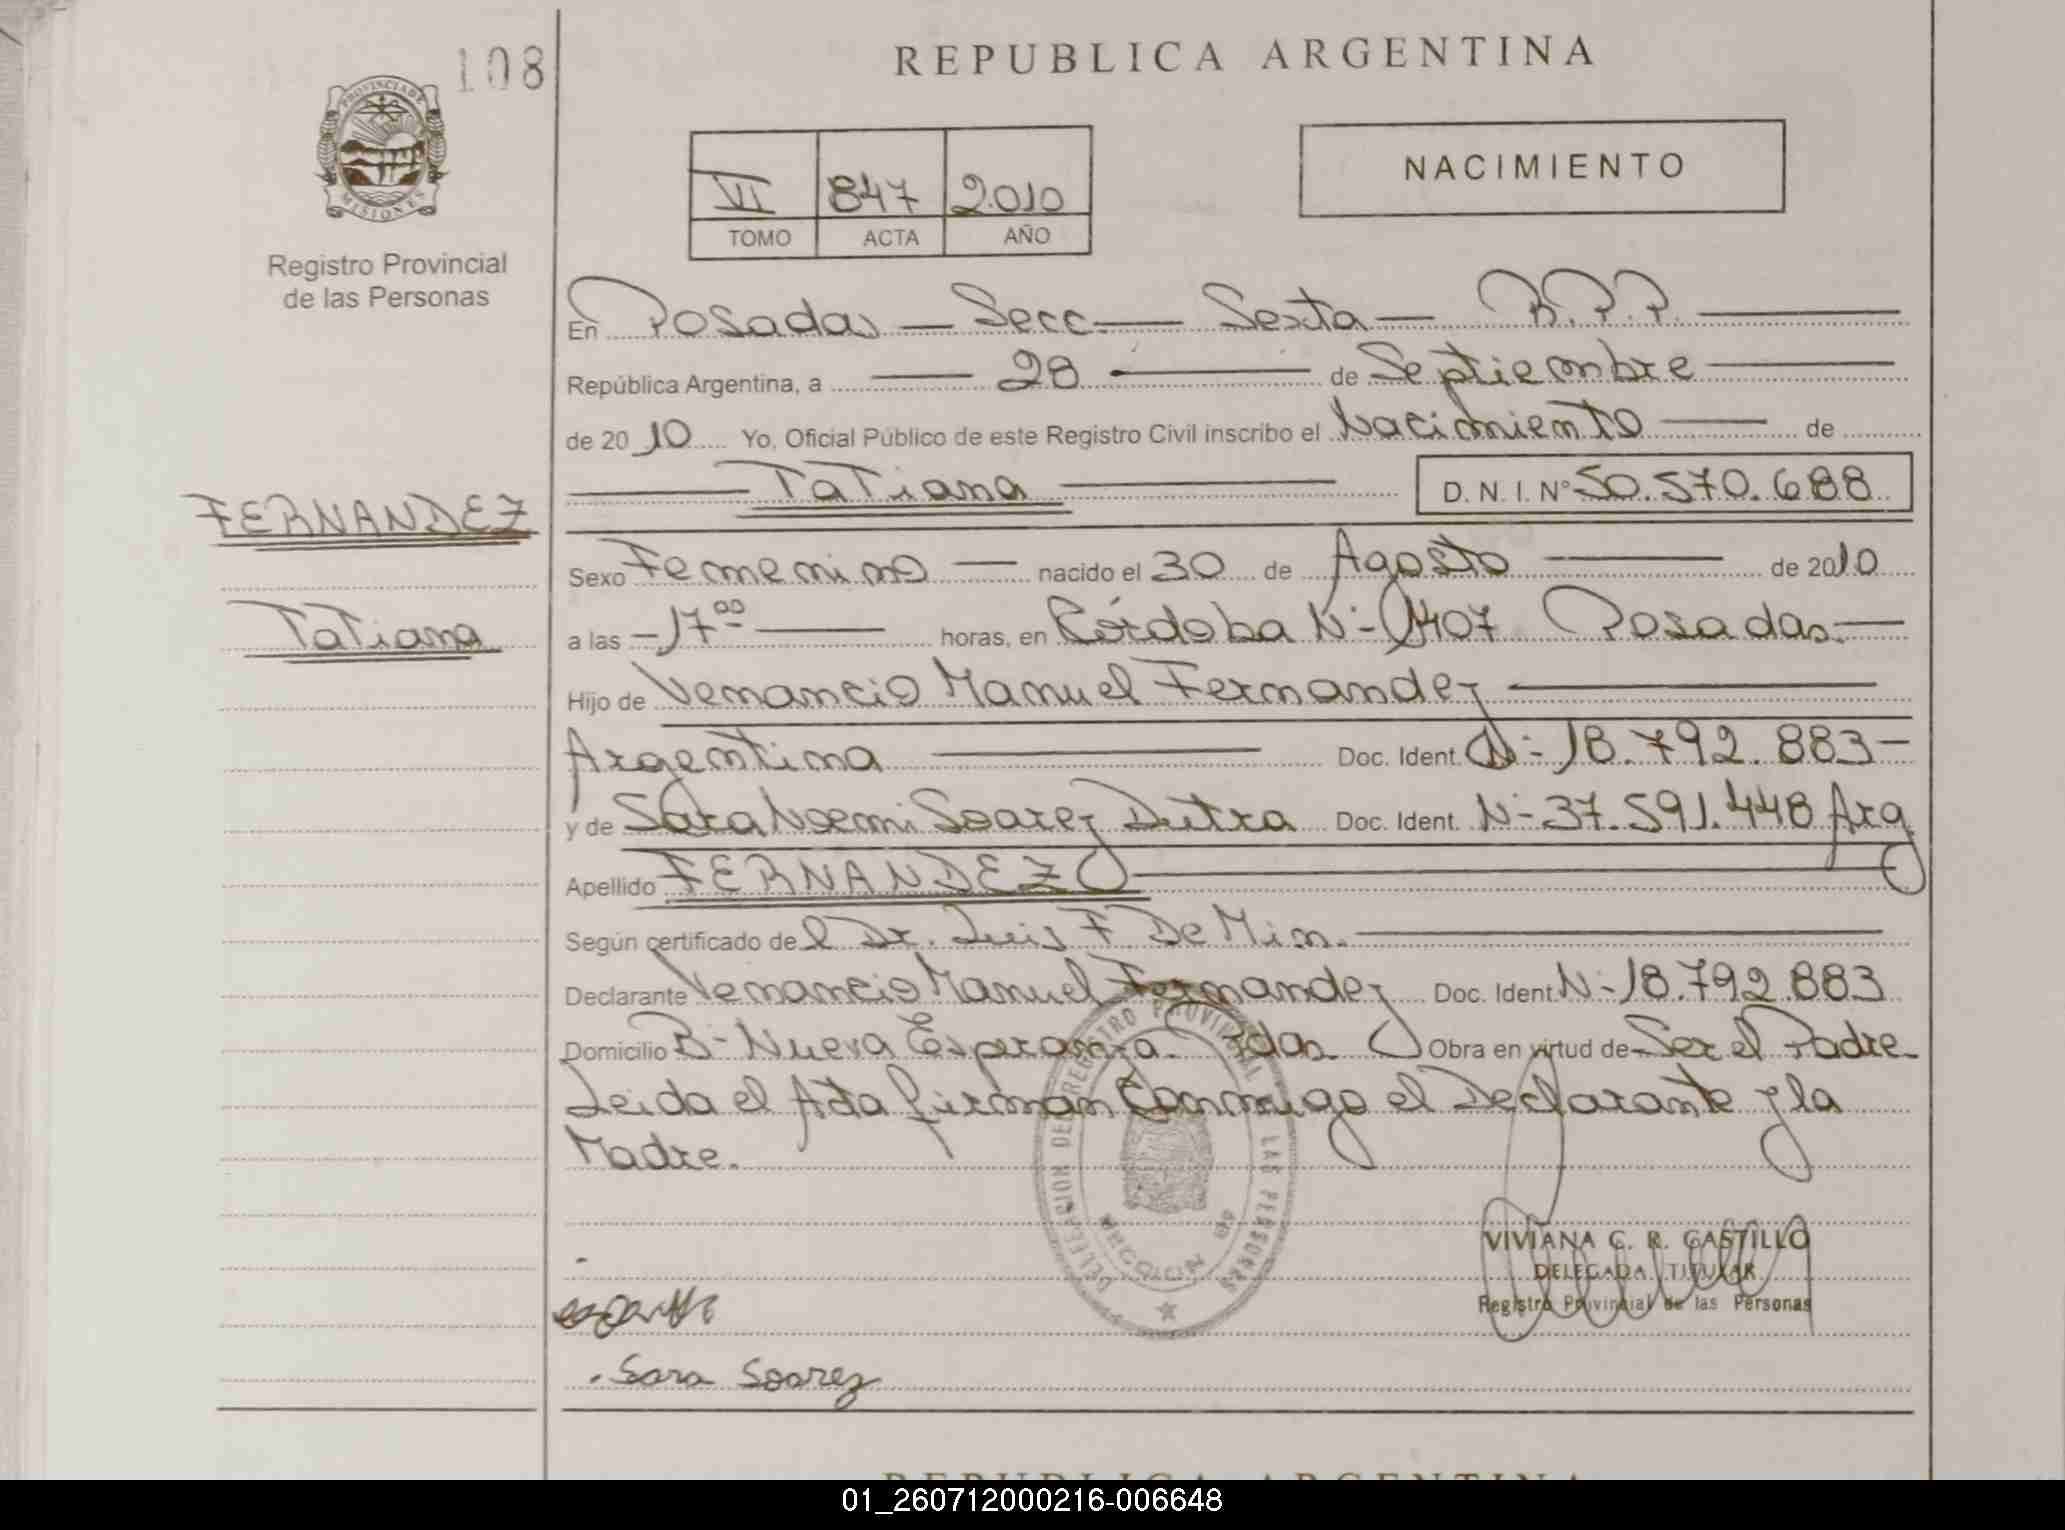 108
REPUBLICA ARGENTINA
PROVINCIA DE
MISIONES
Registro Provincial
de las Personas
VI 847 2010
TOMO ACTA AÑO
NACIMIENTO
En Posadas — Secc — Sexta — R.P.P. —
República Argentina, a — 28 — de Septiembre —
de 2010 Yo, Oficial Público de este Registro Civil inscribo el Nacimiento — de
— Tatiana — D. N. I. Nº 50.570.688
FERNANDEZ
Tatiana
Sexo Femenino — nacido el 30 de Agosto — de 2010
a las — 17 00 — horas, en Córdoba N- 1407 Posadas. —
Hijo de Venancio Manuel Fernandez —
Argentina — Doc. Ident. N- 18.792.883 —
y de Sara Noemi Soarez Dutra Doc. Ident. N- 37.591.448 Arg
Apellido FERNANDEZ —
Según certificado del Dr. Luis F De Min. —
Declarante Venancio Manuel Fernandez Doc. Ident. N- 18.792.883
Domicilio B- Nueva Esperanza. Pdas Obra en virtud de Ser el Padre
Leida el Acta firman Conmigo el Declarante y la
Madre.
DELEGACION DEL REGISTRO PROVINCIAL DE LAS PERSONAS
VIVIANA C. R. CASTILLO
DELEGADA TITULAR
Registro Provincial de las Personas
Sara Soarez
REPUBLICA ARGENTINA
01_260712000216-006648